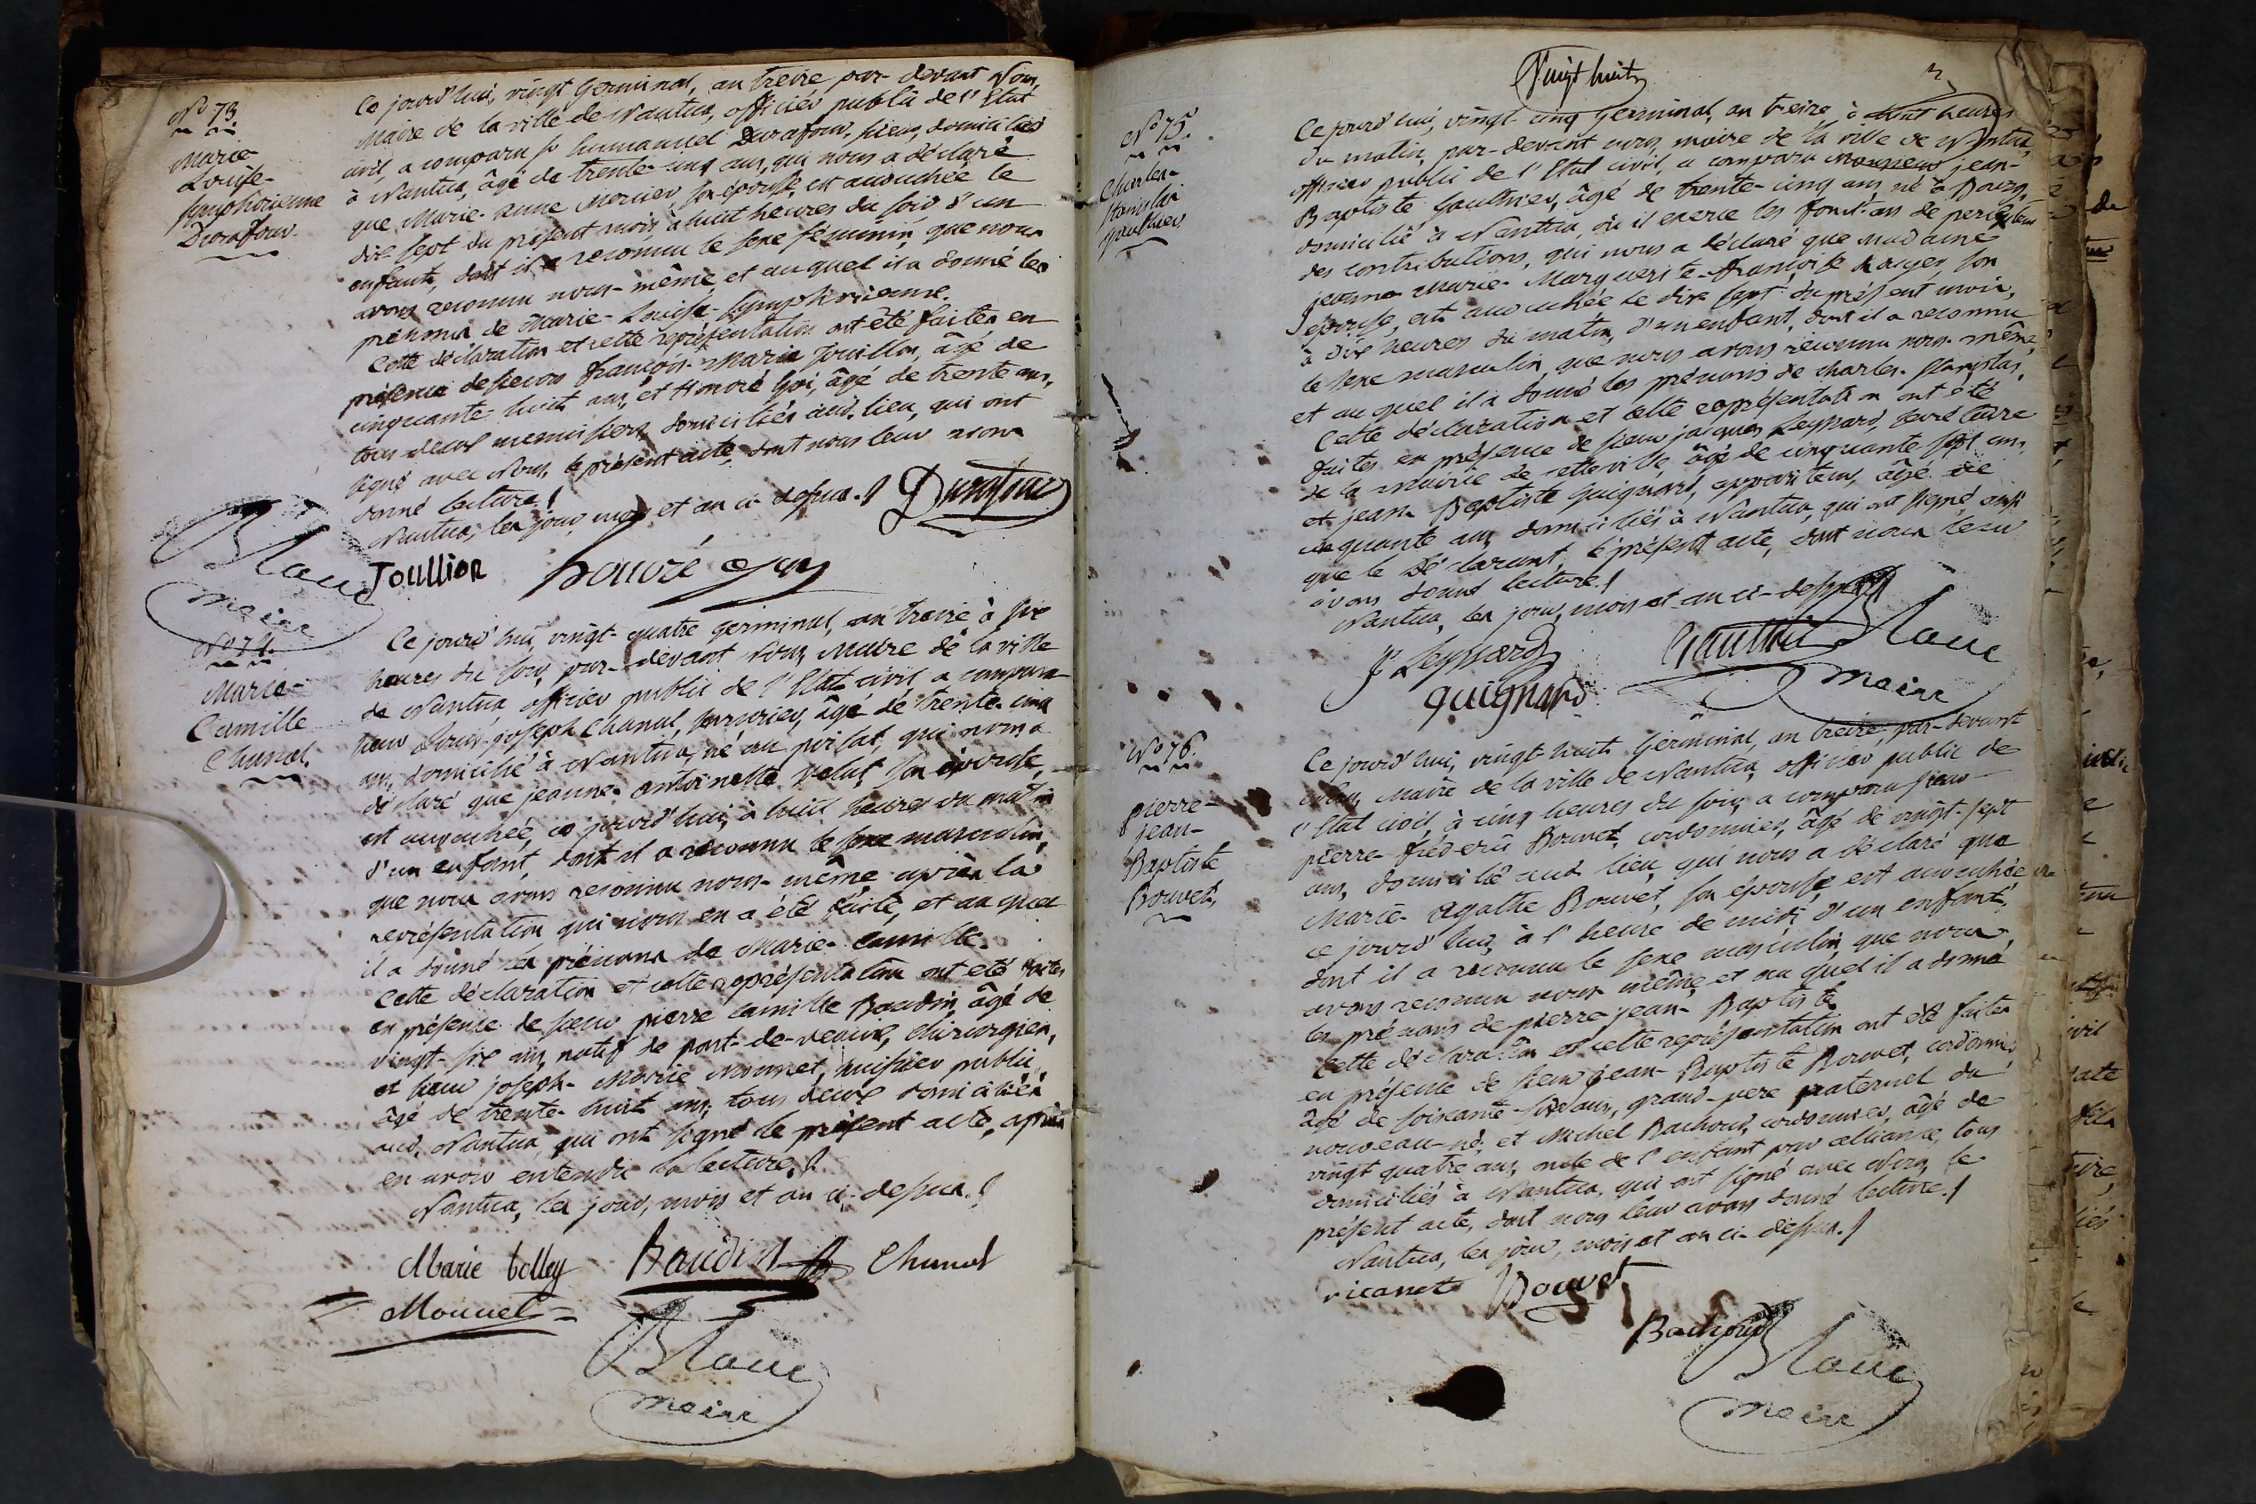 N° 73
Marie-
Louise-
Symphorienne
Durafour.
Ce jourd'hui, vingt Germinal, an treize par-devant Nous,
Maire de la ville de Nantua, officier public de l'Etat
civil, a comparu sr Emmanuel Durafour, domicilié
à Nantua, âgé de trente-cinq ans, qui nous a déclaré
que Marie-Anne Mercier son épouse, est accouchée le
dix sept du présent mois, à huit heures du soir d'un
enfant, dont il a reconnu le sexe féminin, que nous
avons reconnu nous-même, et auquel il a donné les
prénoms de Marie-Louise-Symphorienne.
Cette déclaration et cette représentation ont été faites en
présence de sieurs françois-Marie Jouillon, âgé de
cinquante-huit ans, et Honoré Goi, âgé de trente ans,
tous deux menuisiers domiciliés aud. lieu, qui ont
signé avec Nous, le présent acte, dont nous leur avons
donné lecture./
Nantua, les jour, mois et an ci-dessus./ Durafour
Blanc Joullion honoré
maire
N° 74.
Marie-
Camille
Chanal.
Ce jourd'hui, vingt-quatre Germinal, an treize à six
heures du soir, par-devant Nous, Maire de la ville
de Nantua, officier public de l'Etat civil a comparu
sieur Louis-joseph Chanal, âgé de trente-cinq
ans, domicilié à Nantua, né au poizat, qui nous a
déclaré que jeanne-antoinette Velut son épouse,
est accouchée, ce jourd'hui, à huit heures du matin
d'un enfant, dont il a reconnu le sexe masculin,
que nous avons reconnu nous-même après la
représentation qui nous en a été faite, et au quel
il a donné les prénoms de Marie-Camille.
Cette déclaration et cette représentation ont été faites
en présence de sieur pierre Camille Baudin, âgé de
vingt-six ans, natif de pont-de-veaux, chirurgien,
et sieur joseph-Marie Monnet, huissier public,
âgé de trente-huit ans, tous deux domiciliés
aud. Nantua, qui ont signé le présent acte, après
en avoir entendu la lecture./
Nantua, les jour, mois et an ci-dessus./
Marie tolley Baudin Chanal
Monnet
Blanc
maire
Vingt huit
N° 75.
Charles-
Stanislas
gauthier
Ce jourd'hui, vingt-cinq Germinal, an treize, à huit heures
du matin, par-devant nous, maire de la ville de Nantua,
officier public de l'Etat civil, a comparu Monsieur jean-
Baptiste Gauthier, âgé de trente-cinq ans, né à Bourg,
domicilié à Nantua, où il exerce les fonctions de percepteur
des contributions, qui nous a déclaré que madame
jeanne Marie-Marguerite-françoise son
épouse, est accouchée le dix sept du présent mois,
à dix heures du matin, d'un enfant, dont il a reconnu
le sexe masculin, que nous avons reconnu nous-même,
et au quel il a donné les prénoms de charles-Stanislas.
Cette déclaration et cette représentation ont été
faites en présence de sieur jacques Leyssard, secrétaire
de la mairie de cette ville, âgé de cinquante sept ans,
et jean-Baptiste Guignard, appariteur, âgé de
cinquante ans, domiciliés à Nantua, qui ont signé ainsi
que le déclarant, le présent acte, dont nous leur
avons donné lecture./
Nantua, les jour, mois et an ci-dessus./
Js Leyssard Gauthier Blanc
guignard maire
N° 76.
pierre-
jean-
Baptiste
Bouvet.
Ce jourd'hui, vingt-huit Germinal, an treize, par-devant
nous, Maire de la ville de Nantua, officier public de
l'Etat civil, à cinq heures du soir, a comparu sieur
pierre-fréderic Bouvet, cordonnier, âgé de vingt-sept
ans, domicilié aud. lieu, qui nous a déclaré que
Marie-Agathe Bouvet, son épouse, est accouchée
ce jourd'hui, à l'heure de midi, d'un enfant,
dont il a reconnu le sexe masculin, que nous
avons reconnu nous même, et au quel il a donné
les prénoms de pierre-jean-Baptiste.
Cette déclaration et cette représentation ont été faites
en présence de sieur jean-Baptiste Bouvet, cordonnier
âgé de soixante-six ans, grand-père paternel du
nouveau-né, et Michel Bachoud, cordonnier, âgé de
vingt quatre ans, oncle de l'enfant par alliance, tous
domiciliés à Nantua, qui ont signé avec Nous, le
présent acte, dont nous leur avons donné lecture./
Nantua, les jour, mois et an ci-dessus./
Bouvet
Bachoud
Blanc
maire